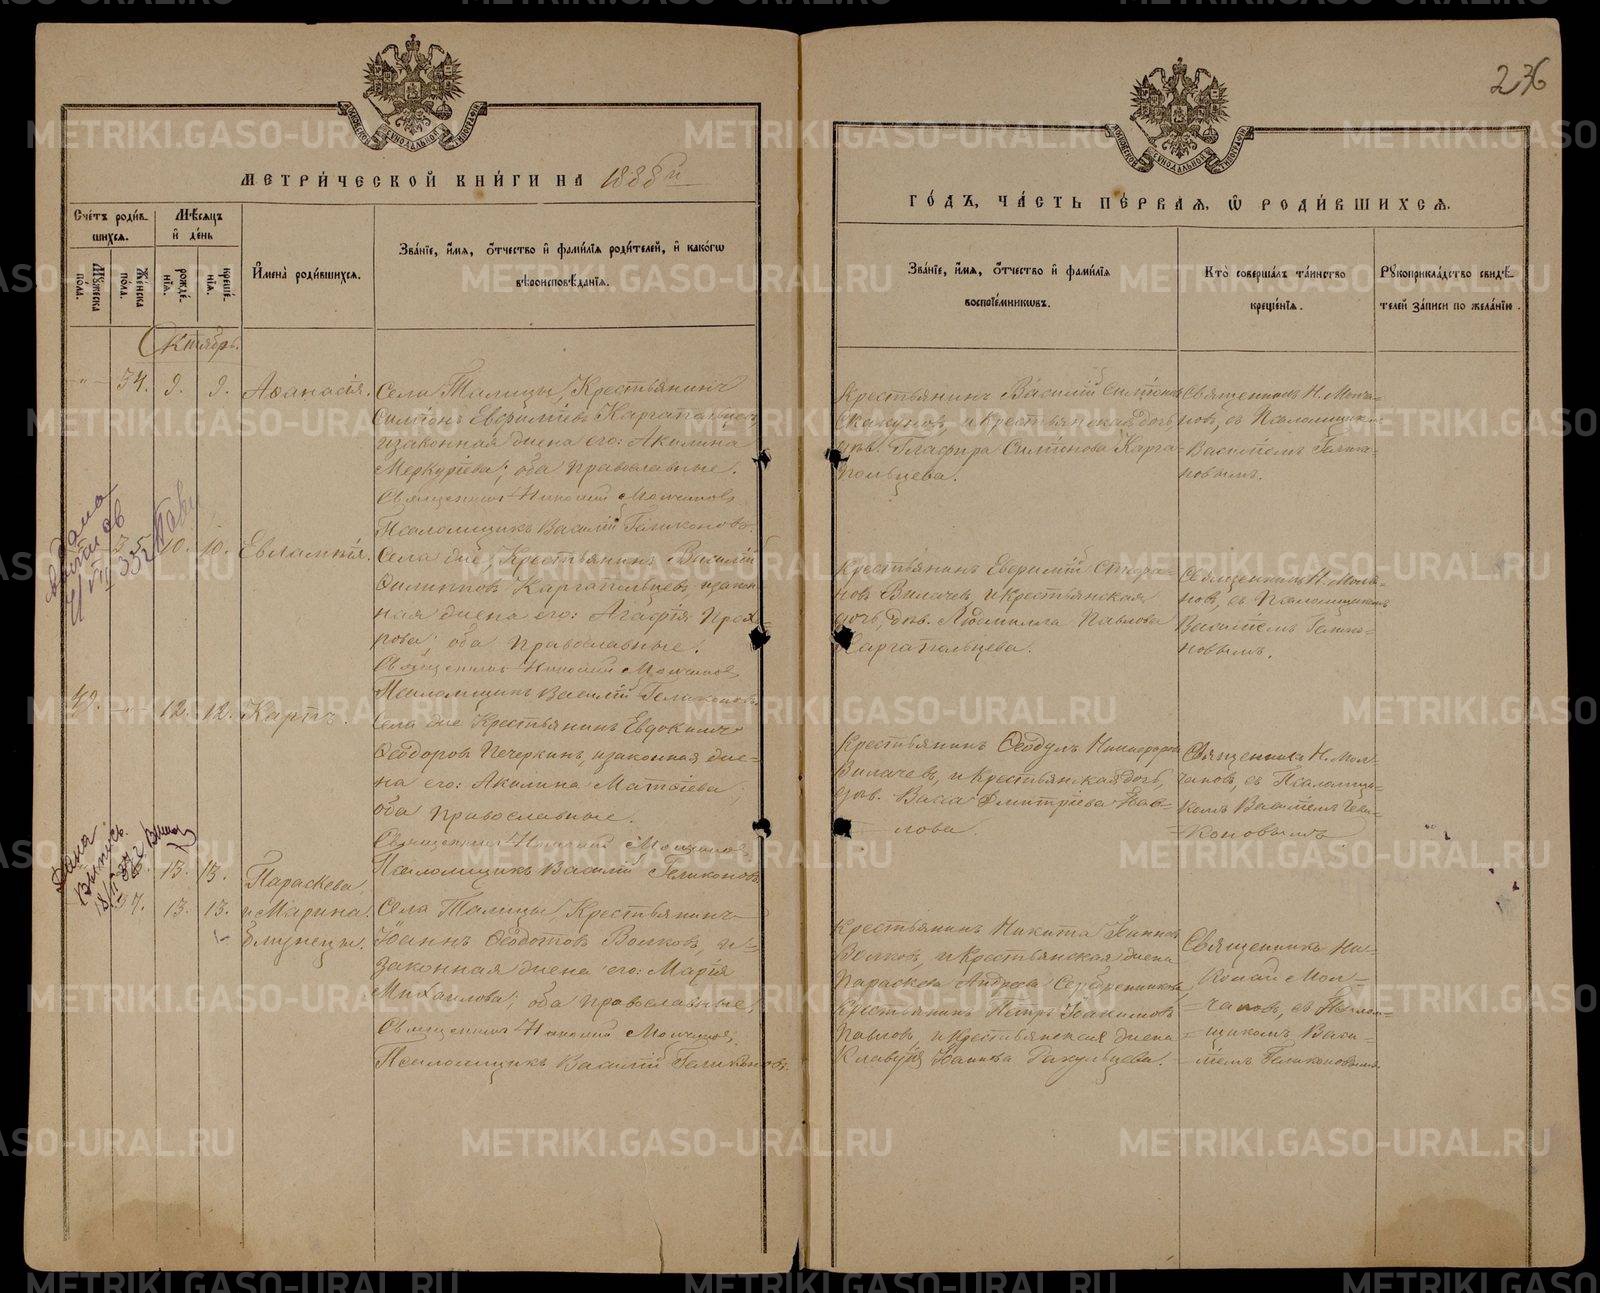 236
МОСКОВСКОЙ СѴНОДАЛЬНОЙ ТИПОГРАФІИ
МОСКОВСКОЙ СѴНОДАЛЬНОЙ ТИПОГРАФІИ
МЕТРИ́ЧЕСКОЙ КНИ́ГИ НА 1888й
ГО́ДЪ, ЧА́СТЬ ПЕ́РВАЯ, Ѡ РОДИ́ВШИХСЯ.
Сче́тъ роди́в-
шихся.
Мѣ́сяцъ
и҆ де́нь
Му́жеска
по́ла.
Же́нска
пола.
рожде́-
нїѧ.
креще́-
нїѧ.
И҆мена̀ роди́вшихся.
Зва́нїе, и҆́мя, ѻ҆́тчество и҆ фами́лїя роди́телей, и҆ како́гѡ
вѣроисповѣ́данїя.
Зва́нїе, и҆́мя, ѻ҆́тчество и҆ фами́лїя
воспрїе́мниковъ.
Кто̀ соверша́лъ та́инство
креще́нїя.
Рꙋкоприкла́дство свидѣ́-
телей за́писи по жела́нїю.
Октябрь.
34. 9. 9. Аѳанасія.
Села Талицы, Крестьянинъ
Симеонъ Евфиміевъ Каргапольцевъ,
и законная жена его: Акилина
Меркуріева; оба православные.
Священникъ Николай Молчановъ
Псаломщикъ Василій Геликоновъ.
Крестьянинъ Василій
и крестьянская дочь,
дѣв. Глафира Симеонова Карга-
польцева.
Священникъ Н. Молча-
новъ, съ Псаломщикомъ
Василіемъ Гелико-
новымъ.
35. 10. 10. Евлампія.
Села тоже, Крестьянинъ Василій
Филипповъ Каргапольцевъ, и закон-
ная жена его: Агафія Прох-
рова; оба православные.
Священникъ Николай Молчановъ
Псаломщикъ Василій Геликоновъ.
Крестьянинъ Евфимій
Вилачевъ, и крестьянская
дочь, дѣв. Людмила Павлова
Каргапольцева.
Священникъ Н. Молча-
новъ, съ Псаломщикомъ
Василіемъ Гелико-
новымъ.
12. 12. Карпъ.
Села тоже Крестьянинъ Евдокимъ
Ѳеодоровъ Печеркинъ, и законная же-
на его: Акилина Матѳіева;
оба православные.
Священникъ Николай Молчановъ
Псаломщикъ Василій Геликоновъ
Крестьянинъ Ѳеодулъ Никифоровъ
Вилачевъ, и крестьянская дочь,
дѣв. Васса Дмитріева Пав-
лова.
Священникъ Н. Мол-
чановъ, съ Псаломщи-
комъ Василіемъ Гели-
коновымъ
Дана
Выпись
13. 13. Параскева
37. 13. 13. и Марина.
близнецы.
Села Талицы, Крестьянинъ
Іоаннъ Ѳеодотовъ Волковъ, и
законная жена его: Марія
Михаилова; оба православные.
Священникъ Николай Молчановъ.
Псаломщикъ Василій Геликоновъ.
Крестьянинъ Никита Іоанновъ
Волковъ, и крестьянская жена
Параскева Андреева Серебренникова,
Крестьянинъ Петръ Іоакимовъ
Павловъ, и крестьянская жена
Клавдія Іоаннова
Священникъ Ни-
колай Мол-
чановъ, съ Псалом-
щикомъ Васи-
ліемъ Геликоновымъ.
METRIKI.GASO-URAL.RU